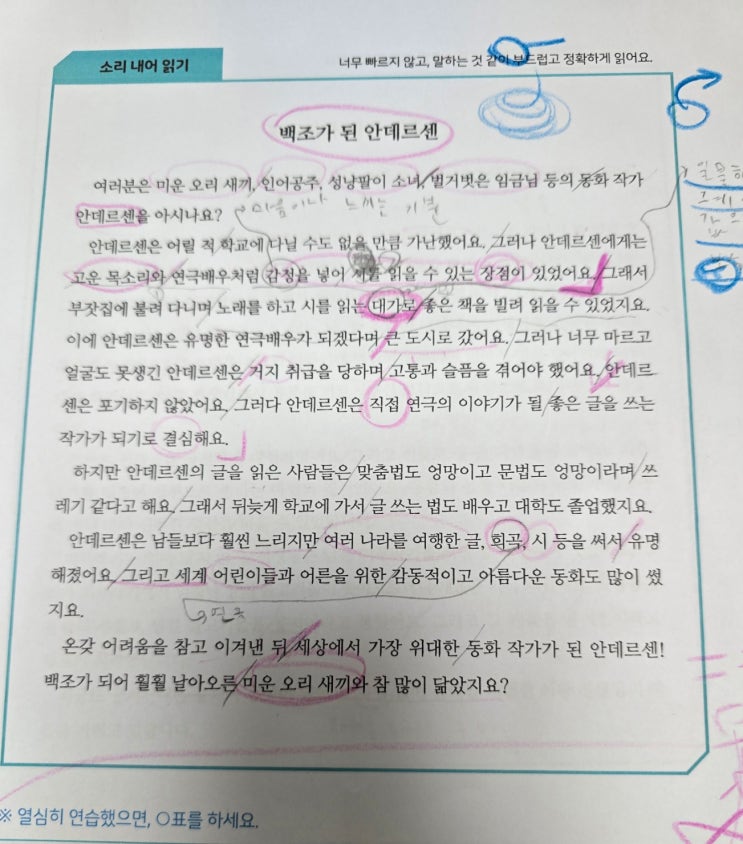 소리 내어 읽기
너무 빠르지 않고, 말하는 것 같이 부드럽고 정확하게 읽어요.
백조가 된 안데르센
여러분은 미운 오리 새끼, 인어공주, 성냥팔이 소녀, 벌거벗은 임금님 등의 동화 작가
안데르센을 아시나요?
마음이나 느끼는 기분
안데르센은 어릴 적 학교에 다닐 수도 없을 만큼 가난했어요. 그러나 안데르센에게는
고운 목소리와 연극배우처럼 감정을 넣어 시를 읽을 수 있는 장점이 있었어요. 그래서
부잣집에 불려 다니며 노래를 하고 시를 읽는 대가로 좋은 책을 빌려 읽을 수 있었지요.
이에 안데르센은 유명한 연극배우가 되겠다며 큰 도시로 갔어요. 그러나 너무 마르고
얼굴도 못생긴 안데르센은 거지 취급을 당하며 고통과 슬픔을 겪어야 했어요. 안데르
센은 포기하지 않았어요. 그러다 안데르센은 직접 연극의 이야기가 될 좋은 글을 쓰는
작가가 되기로 결심해요.
하지만 안데르센의 글을 읽은 사람들은 맞춤법도 엉망이고 문법도 엉망이라며 쓰
레기 같다고 해요. 그래서 뒤늦게 학교에 가서 글 쓰는 법도 배우고 대학도 졸업했지요.
안데르센은 남들보다 훨씬 느리지만 여러 나라를 여행한 글, 희곡, 시 등을 써서 유명
해졌어요. 그리고 세계 어린이들과 어른을 위한 감동적이고 아름다운 동화도 많이 썼
지요.
연극
온갖 어려움을 참고 이겨낸 뒤 세상에서 가장 위대한 동화 작가가 된 안데르센!
백조가 되어 훨훨 날아오른 미운 오리 새끼와 참 많이 닮았지요?
※ 열심히 연습했으면, ○표를 하세요.